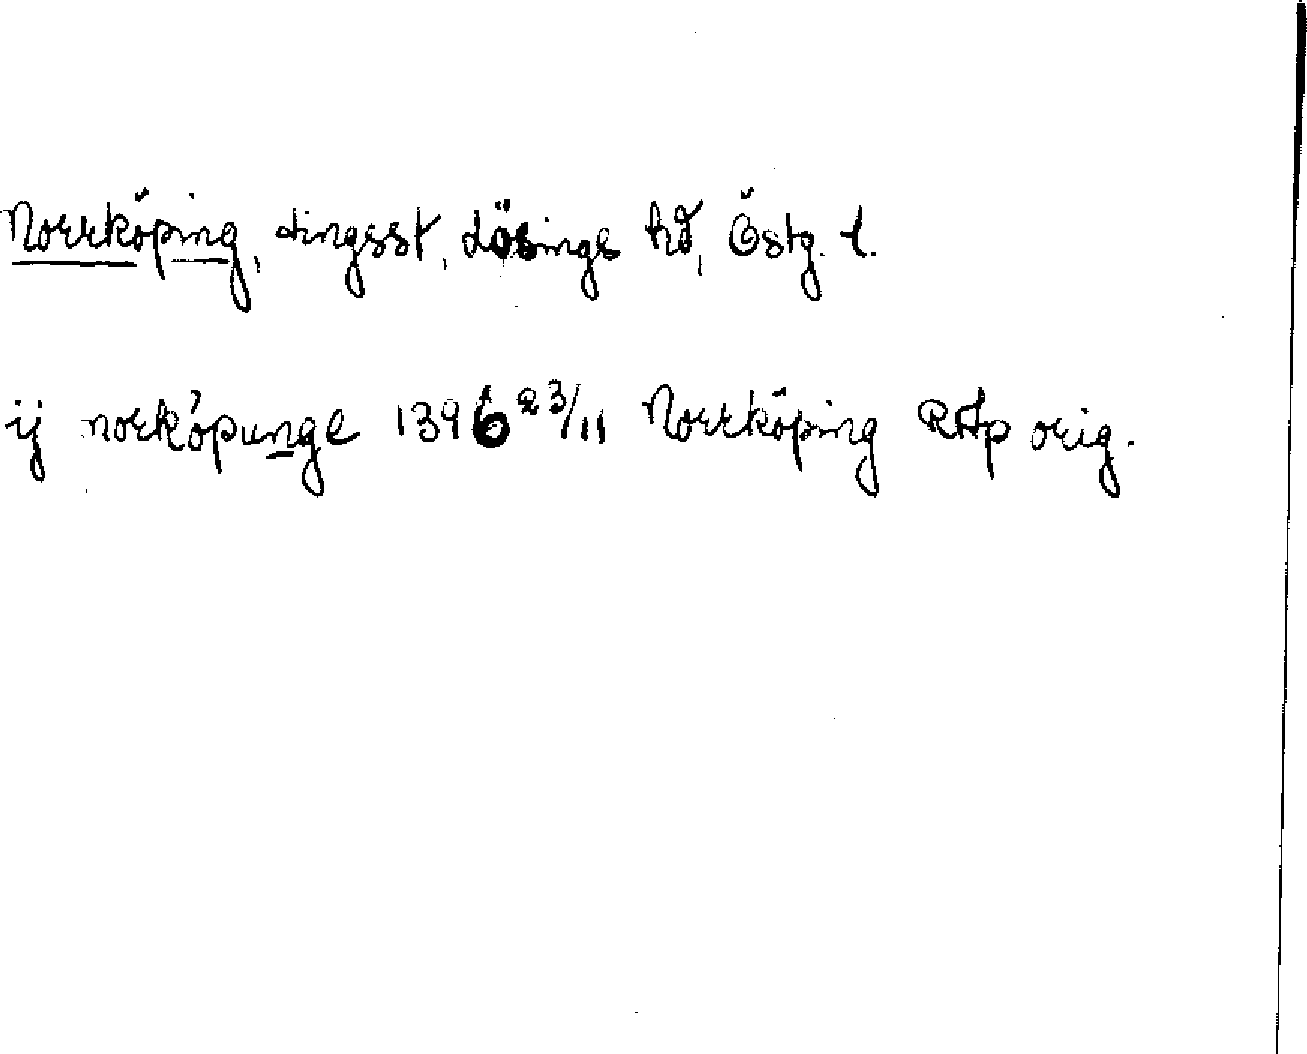 Norrköping, tingsst, Lösings hd, Östg. l.
ij norköpunge 1396 23/11 Norrköping RAp orig.